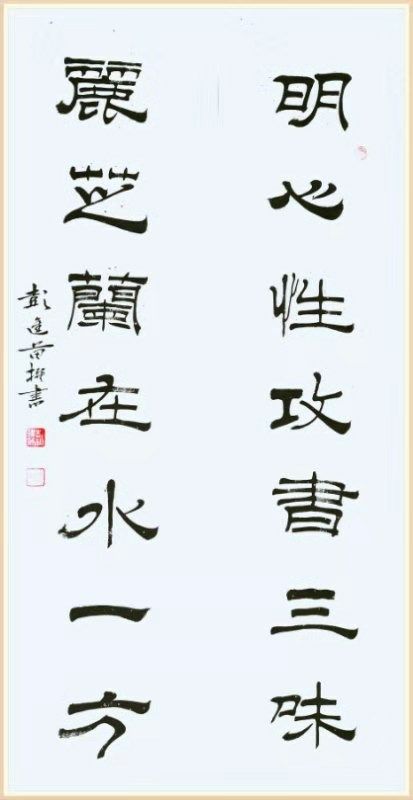 明心性攻書三味
麗芝蘭在水一方
彭進苗撰書